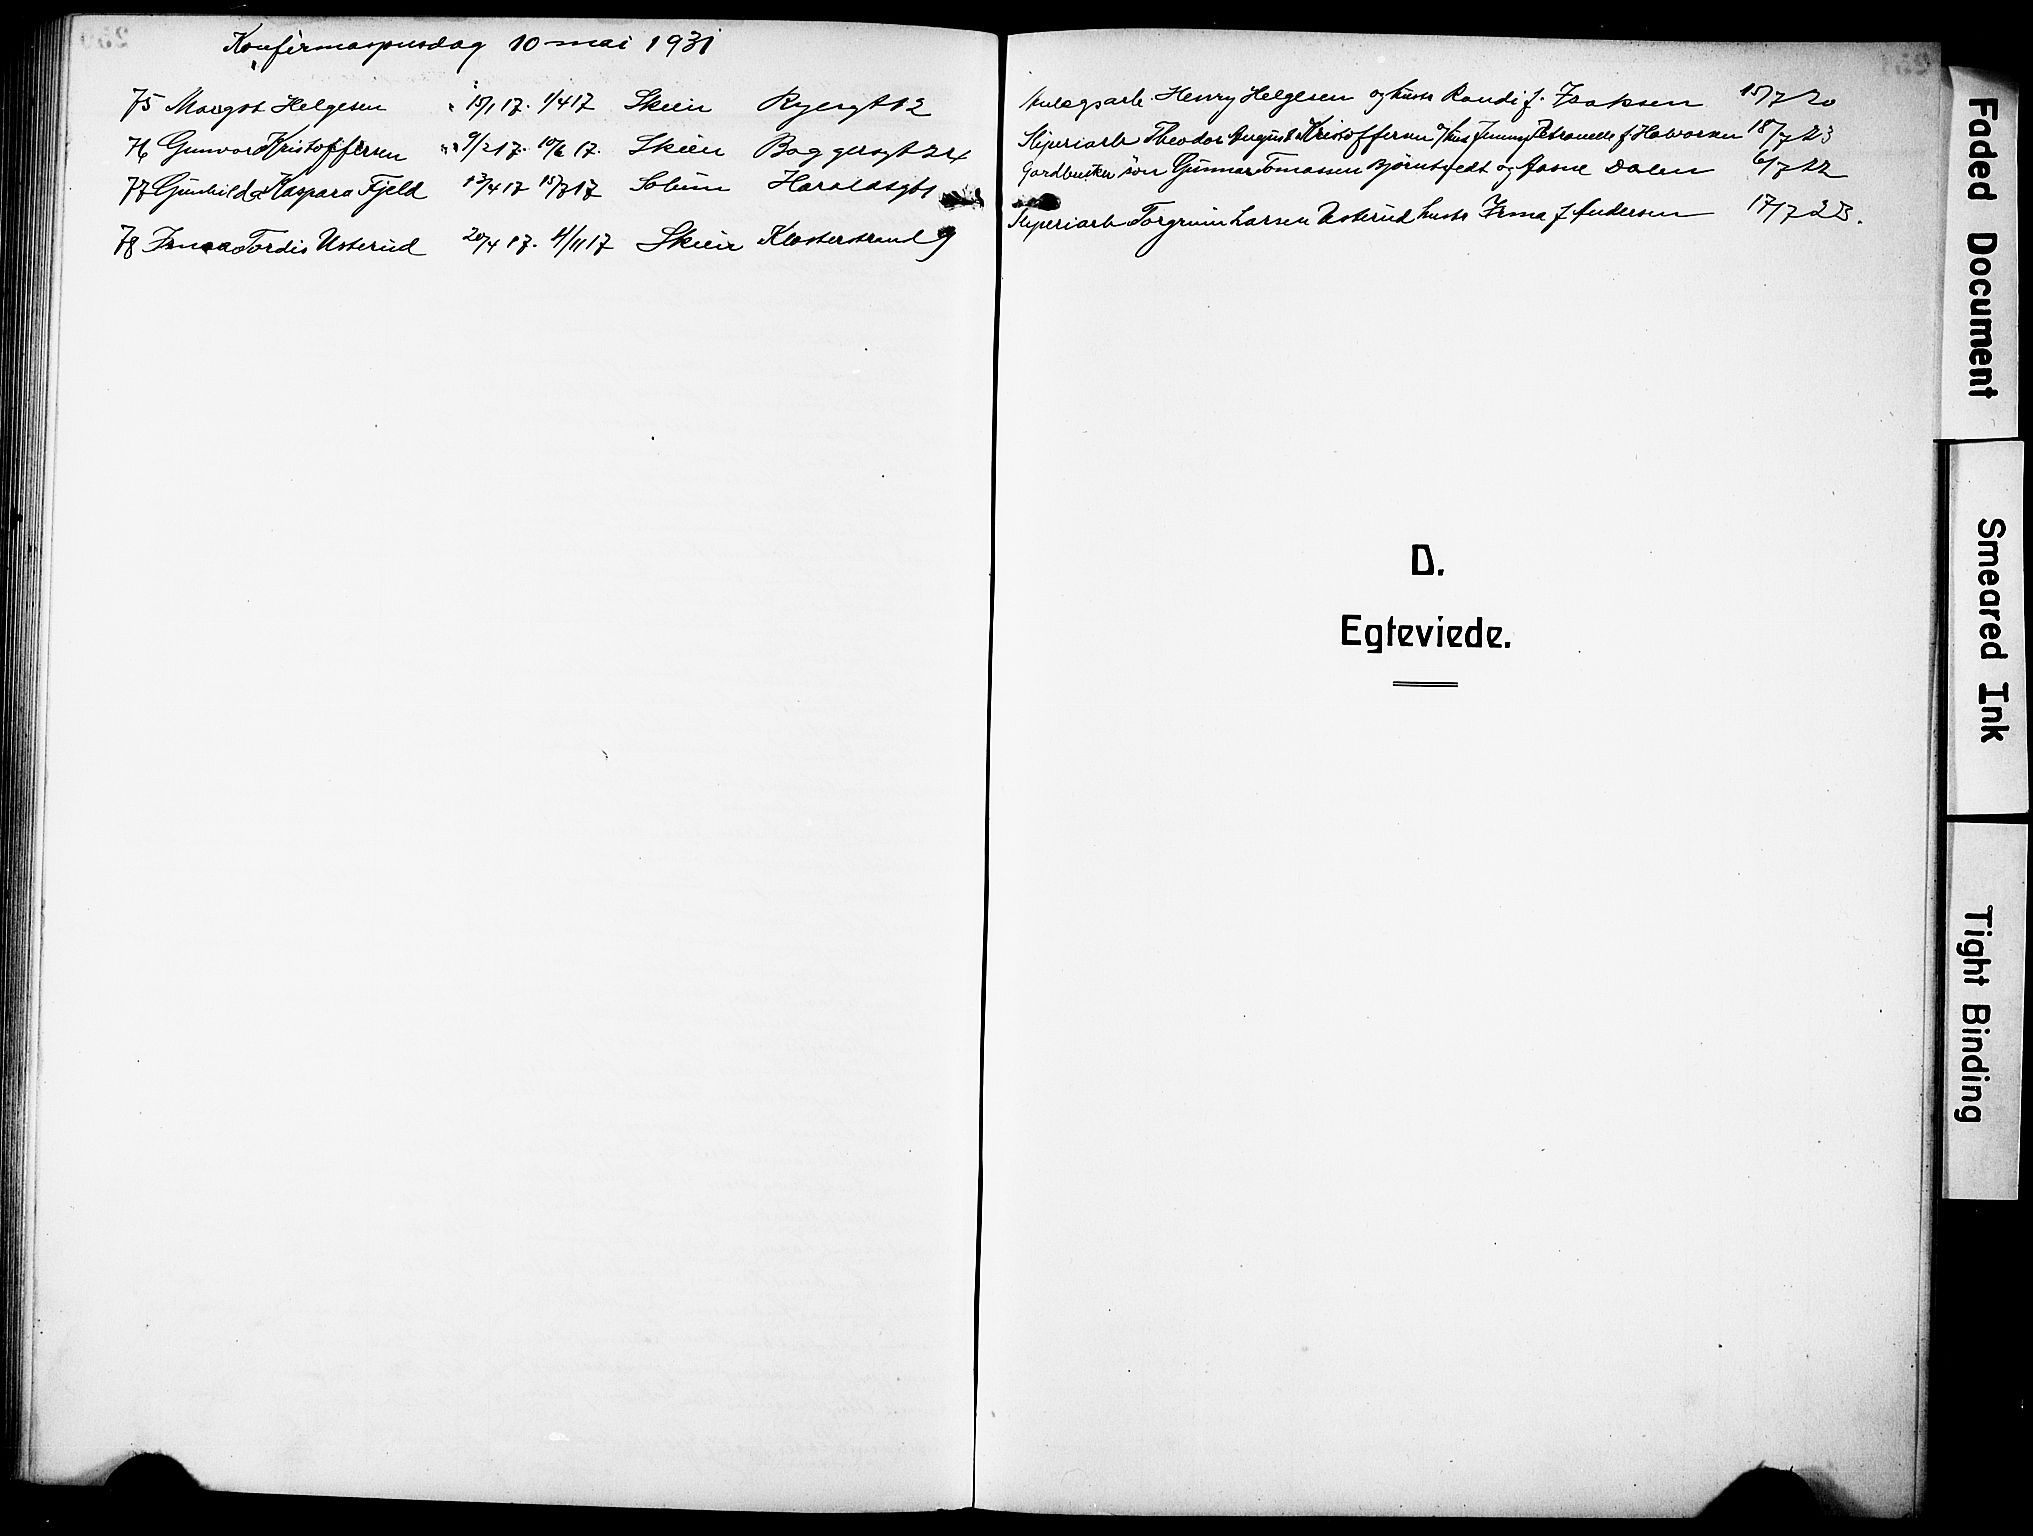 Konfirmasjonsdag 10 mai 1931
75 Margot Helgesen 15/1 17. 1/4 17 Skien Ryersgt 12
76 Gunvor Kristoffersen 9/2 17. 10/6 17. Skien Baggersgt 24
77 Gunhild Kaspara Fjeld 13/4 17 15/7 17 Solum Haraldsgt 1
78 Irma Tordis Usterud 20/4 17. 4/11 17 Skien Klosterstrand 9
Anlegsarb. Henry Helgesen og hustr Randi f. Isaksen 15/7 20
Sliperiarb Theodor August Kristoffersen og hust Jenny Petronelle f Halvorsen 18/7 23
Gardbruker sön Gunnar Tomassen Björntvedt og Aasne Dalen 6/7 22
Sliperiarb Torgrim Larsen Usterud hustr Irma f Andersen 17/7 23.
D.
Egteviede.
Faded Document
Smeared Ink
Tight Binding